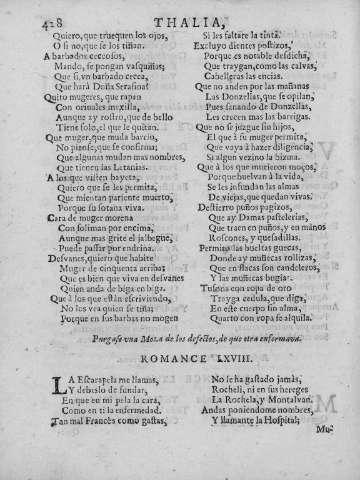 428 THALIA,
Quiero, que truequen los ojos,
O si no, que se los tiñan.
A barbados cecosos,
Mando, se pongan vasquiñas;
Que si vn barbado cecea,
Que hará Doña Serafina?
Quito mugeres, que rapan
Con orinales mixilla,
Aunque ay rostro, que de bello
Tiene solo, el que le quitan.
Que muger, que muda barrio,
No piense, que se confirma;
Que algunas mudan mas nombres,
Que tienen las Letanias.
A los que visten bayeta,
Quiero que se les permita,
Que mientan pariente muerto,
Porque su sotana viva.
Cara de muger morena
Con soliman por encima,
Aunque mas grite el jalbegue,
Puede passar por endrina.
Desvanes, quiero que habite
Muger de cinquenta arriba:
Que es bien que viva en desvanes
Quien anda de biga en biga.
Que à los que estàn escriviendo,
No los vea quien se tiña;
Porque en sus barbas no mogen
Si les faltare la tinta.
Excluyo dientes postizos,
Porque es notable desdicha,
Que traygan, como las calvas,
Cabelleras las encias.
Que no anden por las mañanas
Las Donzellas, que se opilan,
Pues sanando de Donzellas,
Les crecen mas las barrigas.
Que no se juzgue sin hijos,
El que à su muger permita,
Que vaya à hazer diligencia,
Si algun vezino la bizma.
Que à los que murieron moços,
Porque buelvan à la vida,
Se les infundan las almas
De viejas, que quedan vivas.
Destierro puños pagizos,
Que ay Damas pastelerias,
Que traen en puños, y en manos
Roscones, y quesadillas.
Permito las bueltas guecas,
Donde ay muñecas rollizas,
Que en flacas son candeleros,
Y las muñecas bugias.
Tusona con ropa de oro
Trayga cedula, que diga,
En este cuerpo sin alma,
Quarto con ropa se alquila.
Purgase vna Moza de los defectos, de que otra enfermava.
ROMANCE LXVIII.
LA Escarapela me llamas,
Y debislo de fundar,
En que en mi pela la cara,
Como en ti la enfermedad.
Tan mal Francès como gastas,
No le ha gastado jamàs,
Rocheli, ni en sus hereges
La Rochela, y Montalvan.
Andas poniendome nombres,
Y llamante la Hospital;
Mu-